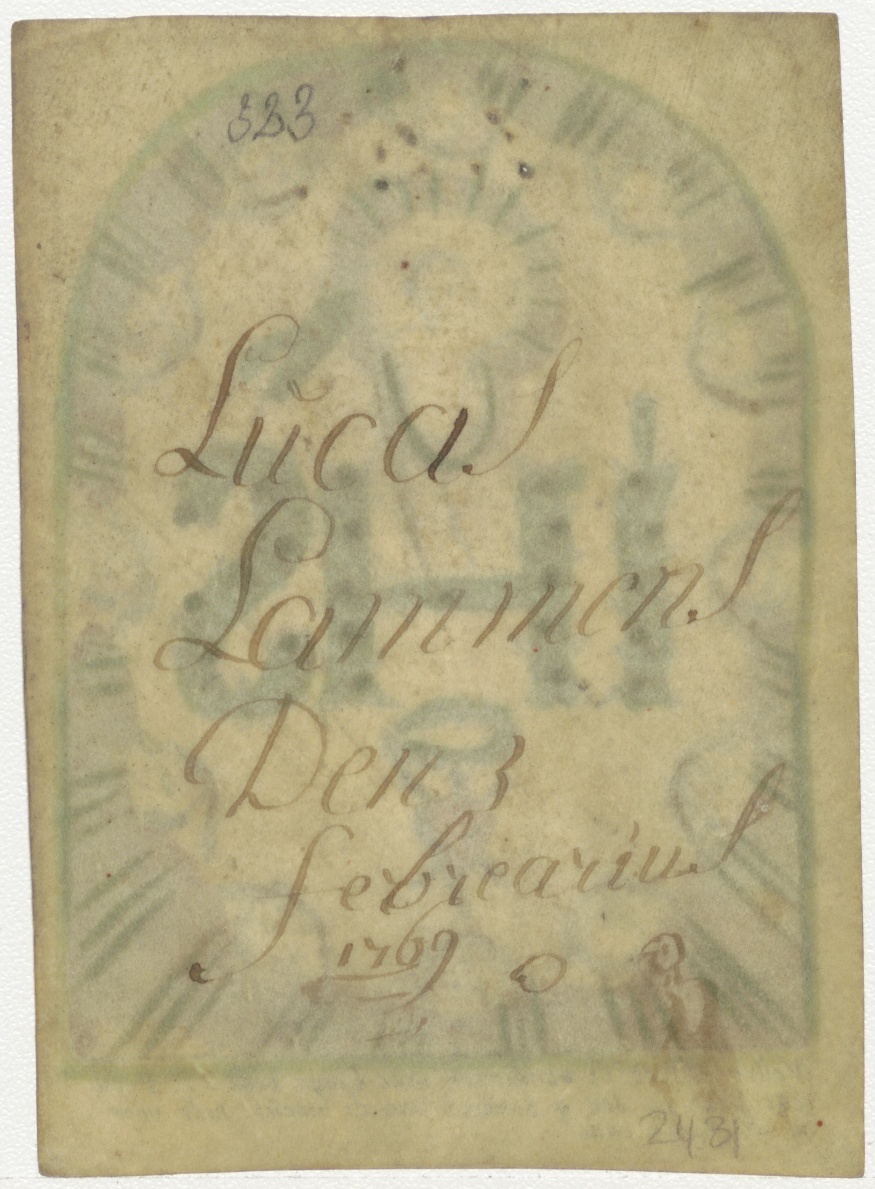 323
Lŭcas
Lammens
Den 3
febrearius
1769
2431